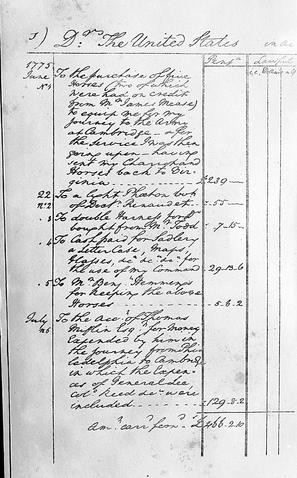 1) D.r The United States in
Pensa Lawful
1775
June To the purchase of five
No 1 Horses (two of which
were had on credit
from Mr James Mease)
to equip me for my
journey to the Army
at Cambridge - & for
the Service I was then
going upon - having
sent my Chariot and
Horses back to Vir-
ginia £239 —
22 To a light Phaeton bot
No 2 of Doctr Renaudet - 55 —
3 To double Harness for Do
bought from Mr Todd - 7 - 15 —
4 To Cash paid for Sadlery
a Letter Case, Maps,
Glasses, &c &c &c for
the use of my Command 29 - 13 - 6
5 To Mr Benj. Hemmings
for keeping the above
Horses 5 - 6 - 2
July To the acct of Thomas
No 6 Mifflin Esqr for Money
Expended by him in
the journey from Phi
ladelphia to Cambrid
in which the Expen-
ces of General Lee
Colo Reed &c were
included 129 - 8 - 2
Amt carrd forwd £466 - 2 - 10